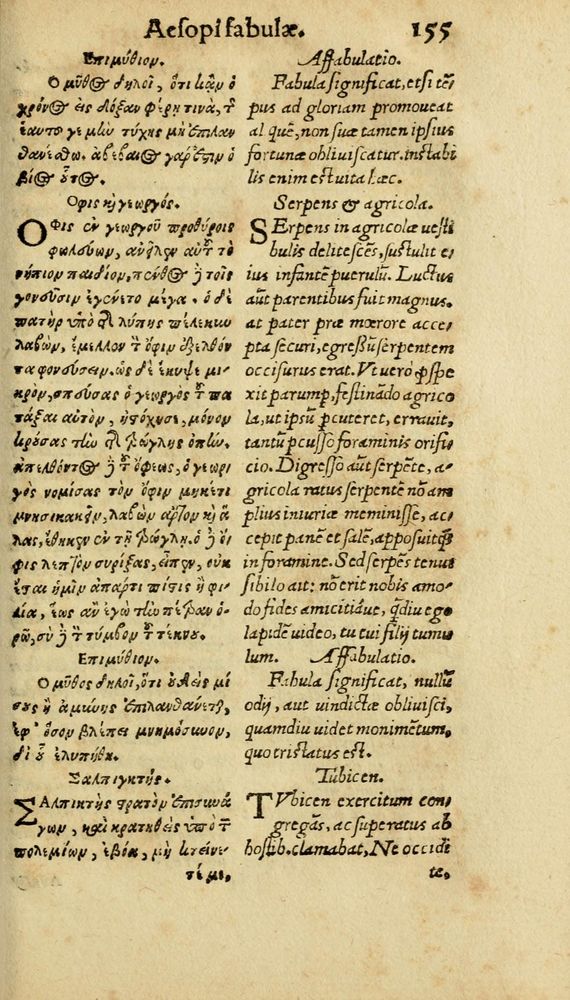 Aesopi fabulæ. 155
Επιμύθιομ.
Ο μῦθος δηλοῖ, ὅτι κἂμ ὁ
χρόνος εἰς δόξαν φέρῃ τινὰ, τ῀
ἑαυτοῦ γε μὲμ τύχης μὴ ἐπιλαν
θανέσθω. ἀβέβαιος γάρ ἐστιμ ὁ
βίος οὗτος.
Οφις κỳ γεωργός.
ΟΦις ἐν γεωργοῦ προθύροις
φωλεύωμ, ἀνεῖλεμ αὐτ῀ τὸ
νήπιομ παιδίομ, πένθος ἢ τοῖς
γονεῦσιμ ἐγένετο μέγα. ὁ δὲ
πατὴρ ὑπὸ τῆς λύπης πέλεκυμ
λαβὼμ, ἔμελλομ τ῀ ὄφιμ ἐξελθόν
τα φονεύσειμ. ὡς δὲ ἔκυψε μι-
κρὸμ, σπεύσας ὁ γεωργὸς τ῀ πα
τάξαι αὐτὸμ, ἠστόχησε, μόνομ
κρούσας τὴμ τῆς τρώγλης ὀπήμ.
ἀπελθόντος ἢ τ῀ ὄφεως, ὁ γεωρ
γὸς νομίσας τὸμ ὄφιμ μηκέτι
μνησικακεῖμ, λαβὼμ ἄρτομ κỳ ἅ
λας, ἔθηκεμ ἐν τῇ τρώγλῃ. ὁ ἢ ὄ-
φις λεπτὸμ συρίξας, εἶπεμ, οὐκ
ἔσται ἡμῖμ ἀπάρτι πίστις ἢ φι-
λία, ἕως ἂν ἐγὼ τὴμ πέτραν ὁ-
ρῶ, σὺ ἢ τ῀ τύμβομ τ῀ τέκνου.
Επιμύθιομ.
Ο μῦθος δηλοῖ, ὅτι οὐδεὶς μί
σους ἢ ἀμύνης ἐπιλανθάνεται,
ἐφ' ὅσομ βλέπει μνημόσυνομ,
δι' οὗ ἐλυπήθη.
Σαλπιγκτής.
ΣΑλπικτὴς στρατὸμ ἐπισυνά
γωμ, καὶ κρατηθεὶς ὑπὸ τ῀
πολεμίωμ, ἐβόα, μὴ κτείνε-
τέ με,
Affabulatio.
Fabula significat, etsi tẽ
pus ad gloriam promoueat
al quẽ, non suæ tamen ipsius
fortunæ obliuiscatur. instabi
lis enim est uita hæc.
Serpens & agricola.
SErpens in agricolæ uesti
bulis delitescẽs, sustulit e
ius infantẽ puerulũ. Luctus
aũt parentibus fuit magnus.
at pater præ mœrore acce
pta securi, egressũ serpentem
occisurus erat. Vt uero ꝓspe
xit parump, festinãdo agrico
la, ut ipsũ pcuteret, errauit,
tantũ pcusso foraminis orifi
cio. Digresso aũt serpẽte, a-
gricola ratus serpentẽ nõ am
plius iniuriæ meminisse, ac-
cepit panẽ et salẽ, apposuitqꝫ
in foramine. Sed serpẽs tenui
sibilo ait: nõ erit nobis amo-
do fides amicitiáue, q̃diu ego
lapidẽ uideo, tu tui filij tumu
lum. Affabulatio.
Fabula significat, nullũ
odij, aut uindictæ obliuisci,
quamdiu uidet monimentum,
quo tristatus est.
Tubicen.
TVbicen exercitum con
gregãs, ac superatus ab
hostib. clamabat, Ne occidi
te,